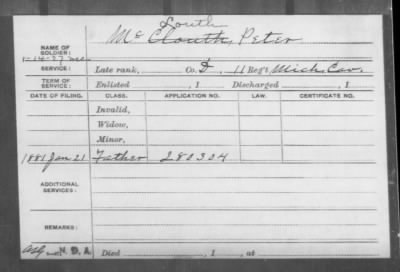 Louth
Mc Clouth, Peter
NAME OF SOLDIER:
SERVICE: Late rank, Co. D, 11 Reg't Mich. Cav.
TERM OF SERVICE: Enlisted , 1 Discharged , 1
DATE OF FILING. CLASS. APPLICATION NO. LAW. CERTIFICATE NO.
Invalid,
Widow,
Minor,
1881 Jan 21 Father 280304
ADDITIONAL SERVICES:
REMARKS:
Died , 1 , at